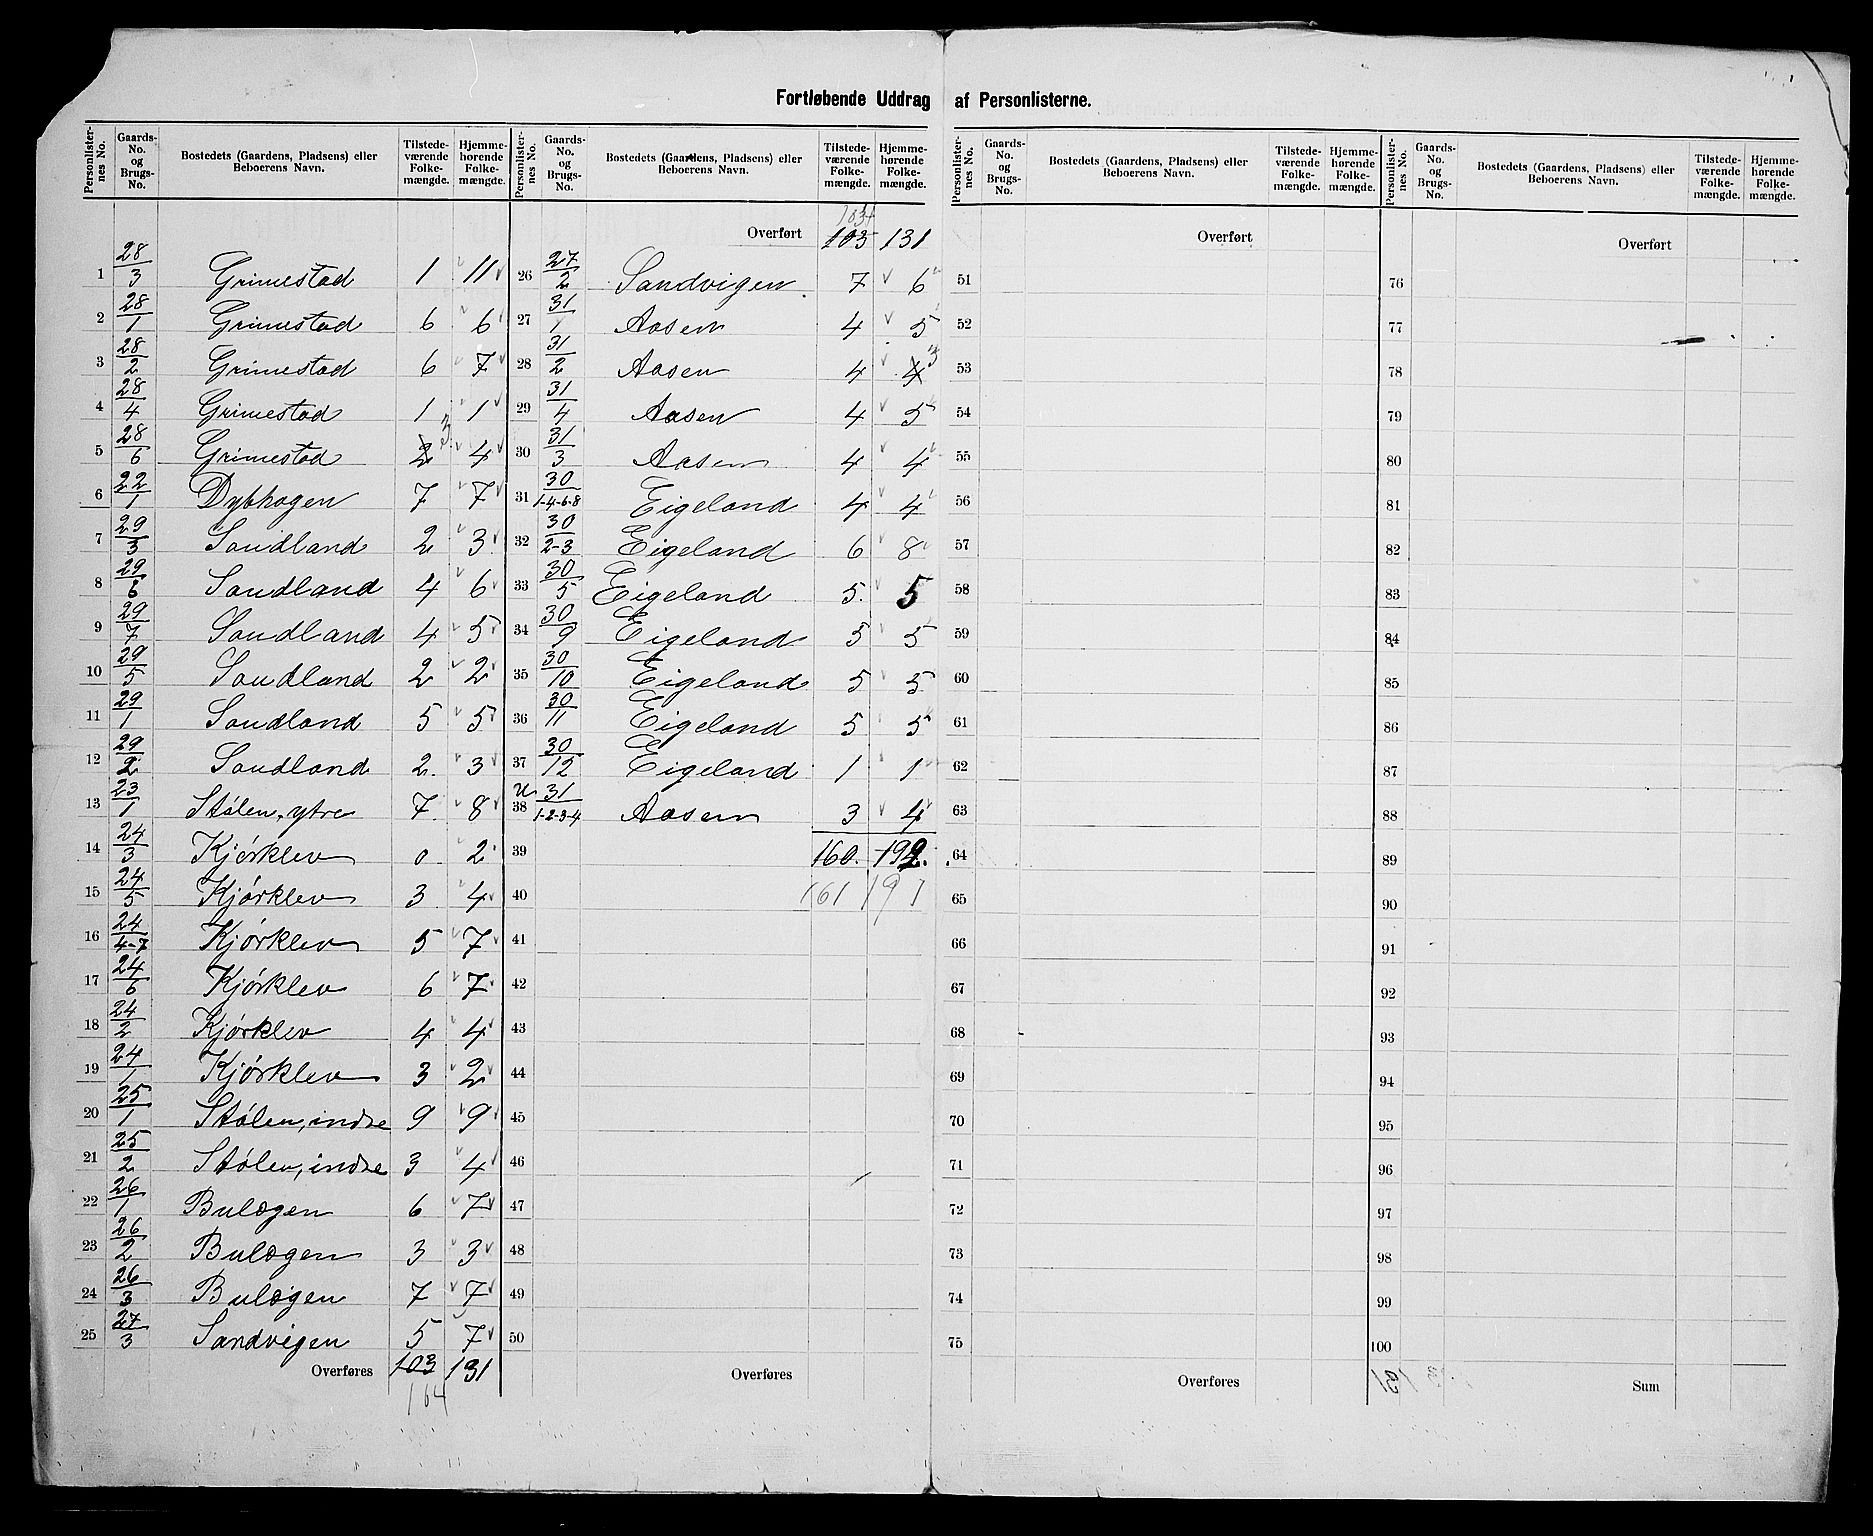 Fortløbende Uddrag af Personlisterne.
Personlister-nes No. | Gaards-No. og Brugs-No. | Bostedets (Gaardens, Pladsens) eller Beboerens Navn. | Tilstede-værende Folke-mængde. | Hjemme-hørende Folke-mængde.
1 28/3 Grimestad 1 11
2 28/1 Grimestad 6 6
3 28/2 Grimestad 6 7
4 28/4 Grimestad 1 1
5 28/6 Grimestad 2 3 4
6 22/1 Dybhagen 7 7
7 29/3 Saudland 2 3
8 29/6 Saudland 4 6
9 29/7 Saudland 4 5
10 29/5 Saudland 2 2
11 29/1 Saudland 5 5
12 29/2 Saudland 2. 3
13 23/1 Stølen, ytre 7. 8
14 24/3 Kjørklev 0 2
15 24/5 Kjørklev 3 4
16 24/4-7 Kjørklev 5 7
17 24/6 Kjørklev 6 7
18 24/2 Kjørklev 4 4
19 24/1 Kjørklev 3 2
20 25/1 Stølen, indre 9 9
21 25/2 Stølen, indre 3 4
22 26/1 Bulægen 6 7
23 26/2 Bulægen 3 3
24 26/3 Bulægen 7 7
25 27/3 Sandvigen 5 7
Overføres 103 131
104
Personlister-nes No. | Gaards-No. og Brugs-No. | Bostedets (Gaardens, Pladsens) eller Beboerens Navn. | Tilstede-værende Folke-mængde. | Hjemme-hørende Folke-mængde.
104
Overført 103 131
26 27/2 Sandvigen 7 6
27 31/1 Aasen 4 5
28 31/2 Aasen 4 4 3
29 31/4 Aasen 4 5
30 31/3 Aasen 4 4
31 30/1-4-6-8 Eigeland 4 4
32 30/2-3 Eigeland 6 8
33 30/5 Eigeland 5. 5
34 30/9 Eigeland 5 5
35 30/10 Eigeland 5 5
36 30/11 Eigeland 5 5
37 30/12 Eigeland 1 1
38 31/1-2-3-4 Aasen 3 4
39 160. 192.
40 161 191
41
42
43
44
45
46
47
48
49
50
Overføres
Personlister-nes No. | Gaards-No. og Brugs-No. | Bostedets (Gaardens, Pladsens) eller Beboerens Navn. | Tilstede-værende Folke-mængde. | Hjemme-hørende Folke-mængde.
Overført
51
52
53
54
55
56
57
58
59
60
61
62
63
64
65
66
67
68
69
70
71
72
73
74
75
Overføres
Personlister-nes No. | Gaards-No. og Brugs-No. | Bostedets (Gaardens, Pladsens) eller Beboerens Navn. | Tilstede-værende Folke-mængde. | Hjemme-hørende Folke-mængde.
Overført
76
77
78
79
80
81
82
83
84
85
86
87
88
89
90
91
92
93
94
95
96
97
98
99
100
Sum